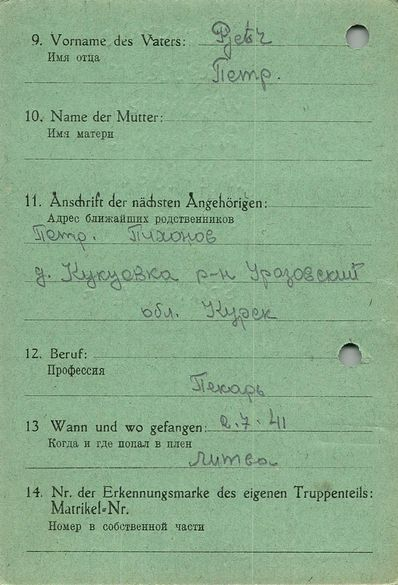 9. Vorname des Vaters: Pjetr
Имя отца
Петр.
10. Name der Mutter:
Имя матери
11. Anschrift der nächsten Angehörigen:
Адрес ближайших родственников
Петр. Пихонов
д. Кукуевка р-н Уразовский
обл. Курск
12. Beruf:
Профессия
Пекарь
13 Wann und wo gefangen: 2.7.41
Когда и где попал в плен
Литва
14. Nr. der Erkennungsmarke des eigenen Truppenteils:
Matrikel-Nr.
Номер в собственной части